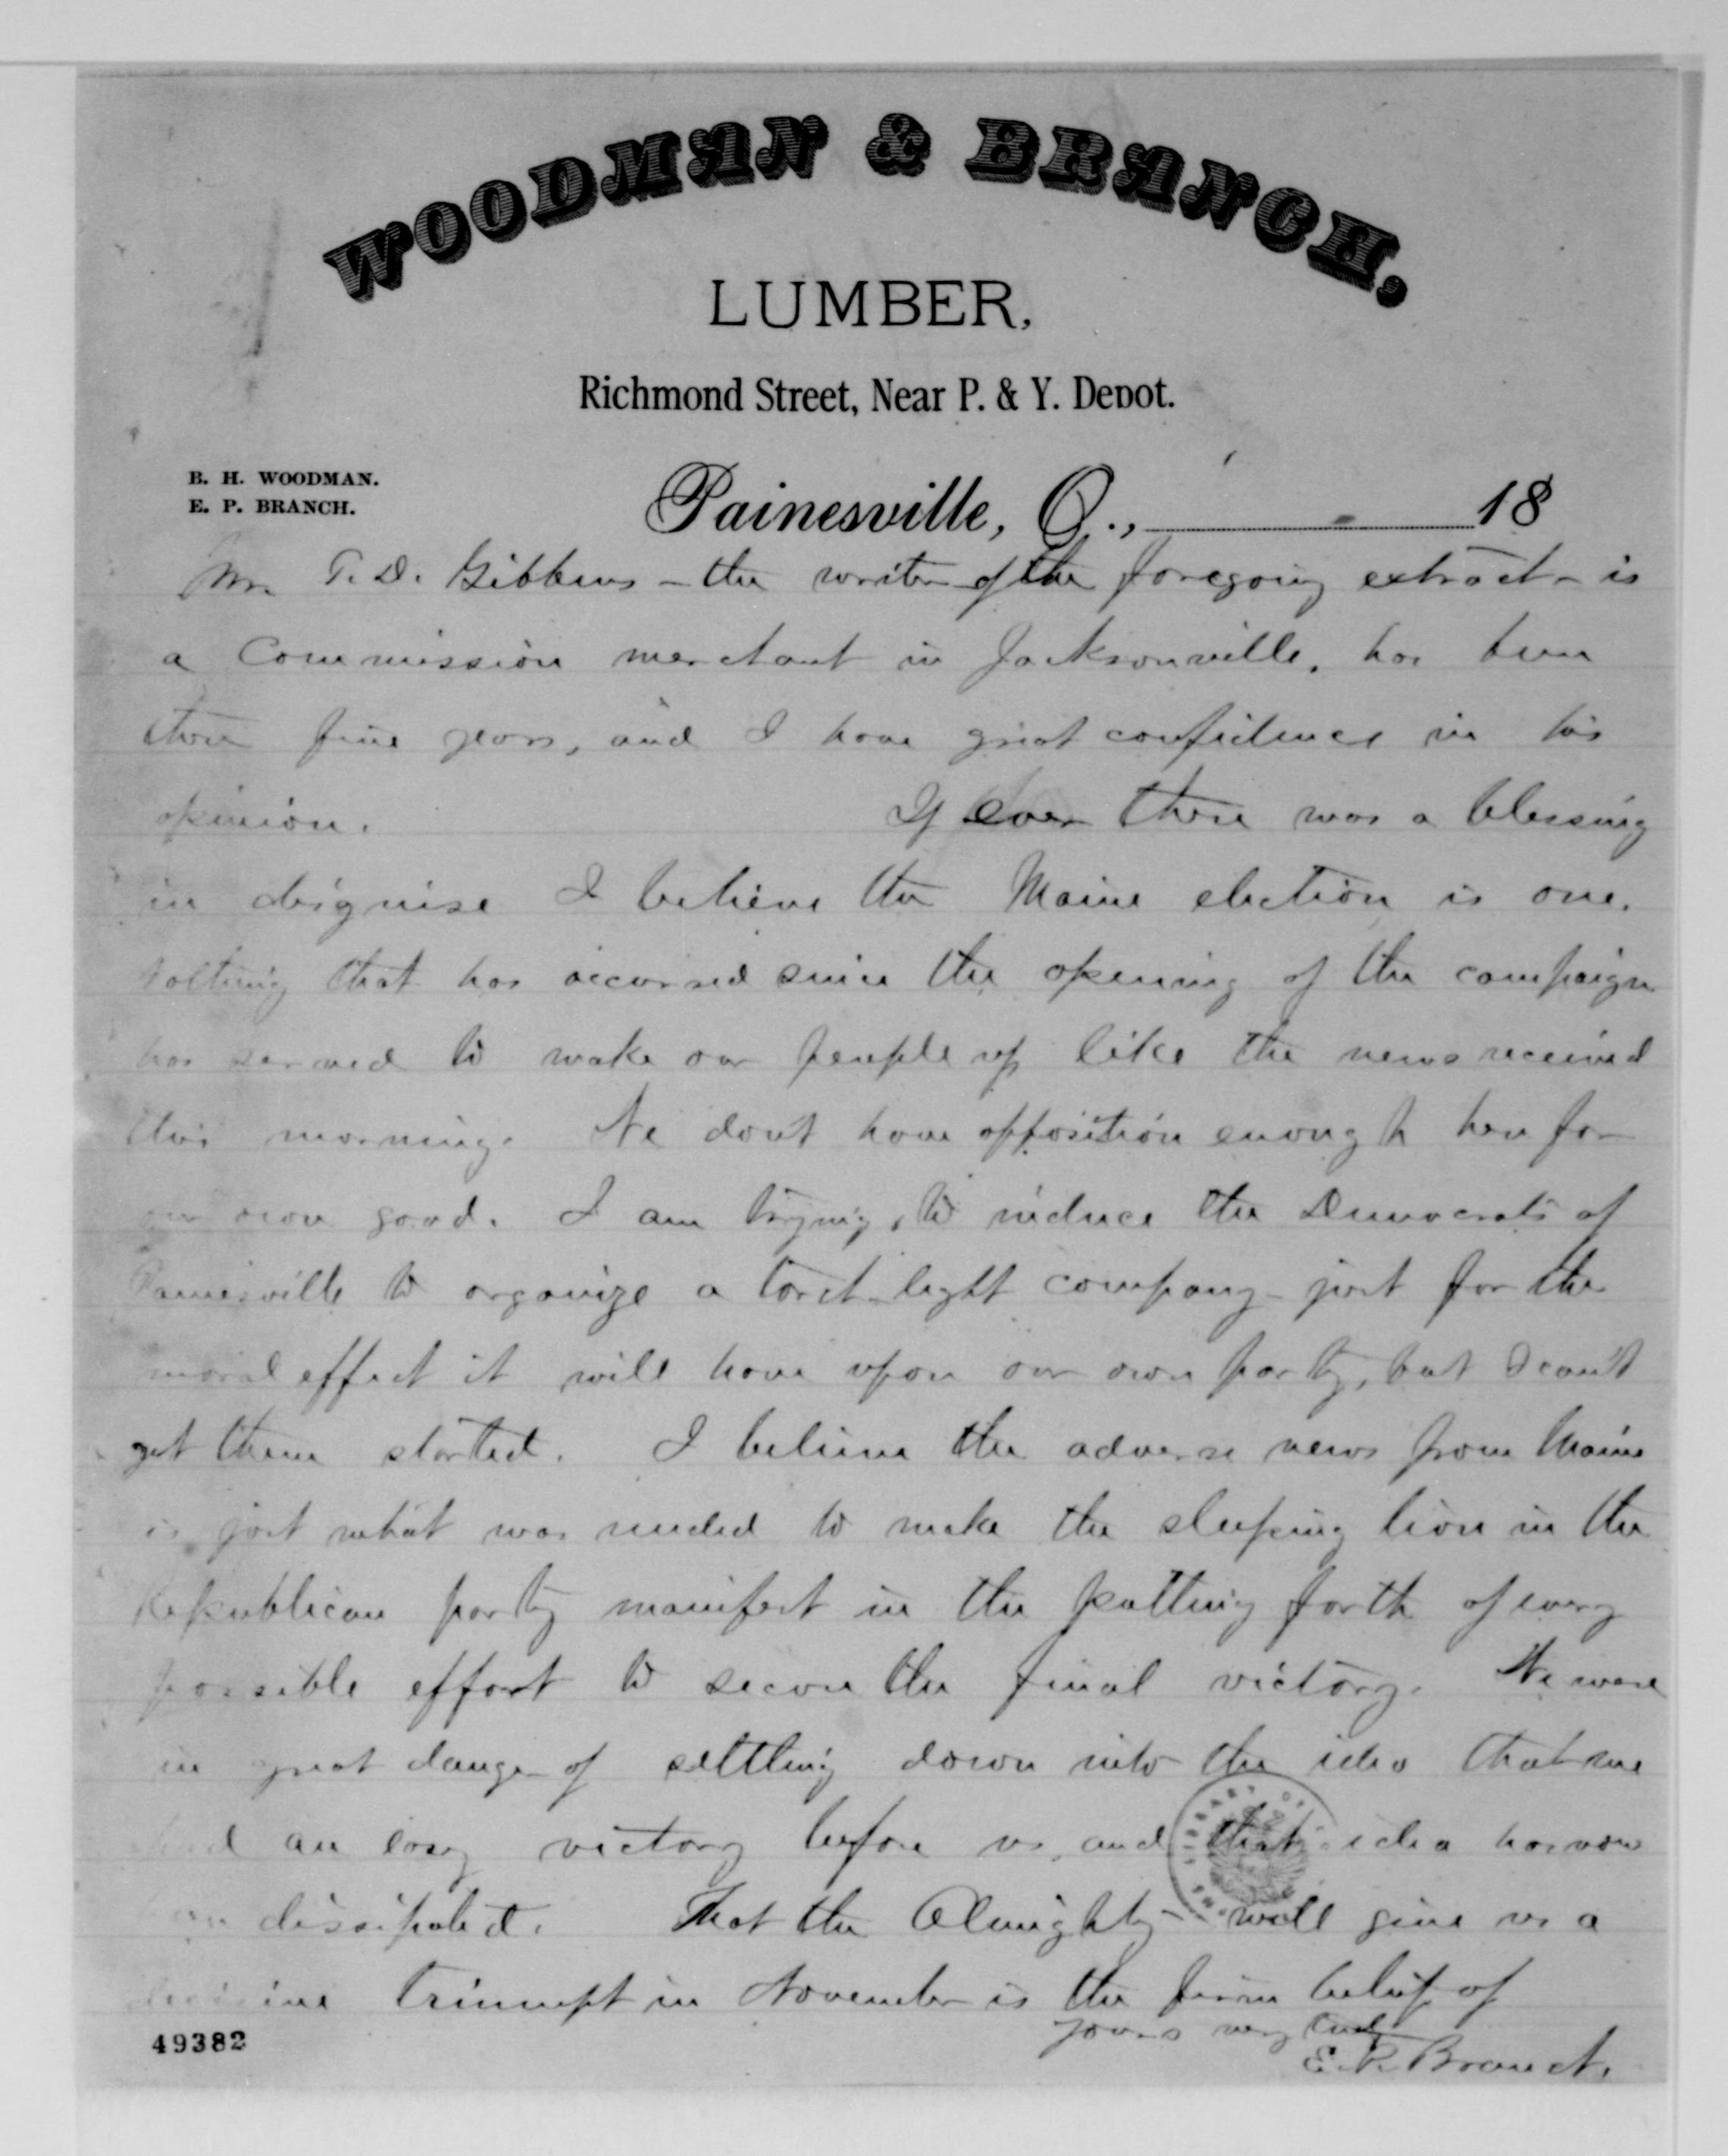 WOODMAN & BRANCH,
LUMBER,
Richmond Street, Near P. & Y. Depot.
B. H. WOODMAN.
E. P. BRANCH.
Painesville, O., 18
Mr. T. D. Gibbens – the writer of the foregoing extract – is
a Commission merchant in Jacksonville, has been
there five years, and I have great confidence in his
opinion. If ever there was a blessing
in disguise I believe the Maine election is one.
Nothing that has occurred since the opening of the campaign
has served to wake our people up like the news received
this morning. We don't have opposition enough here for
our own good. I am trying to induce the Democrats of
Painesville to organize a torch-light company – just for the
moral effect it will have upon our own party, but I can't
get them started. I believe the adverse news from Maine
is just what was needed to make the sleeping lion in the
Republican party manifest in the putting forth of every
possible effort to secure the final victory. We were
in great danger of settling down into the idea that we
had an easy victory before us, and that idea has now
been dissipated. That the Almighty – will give us a
decisive triumph in November is the firm belief of
yours very truly
E. P. Branch.
LIBRARY OF
49382